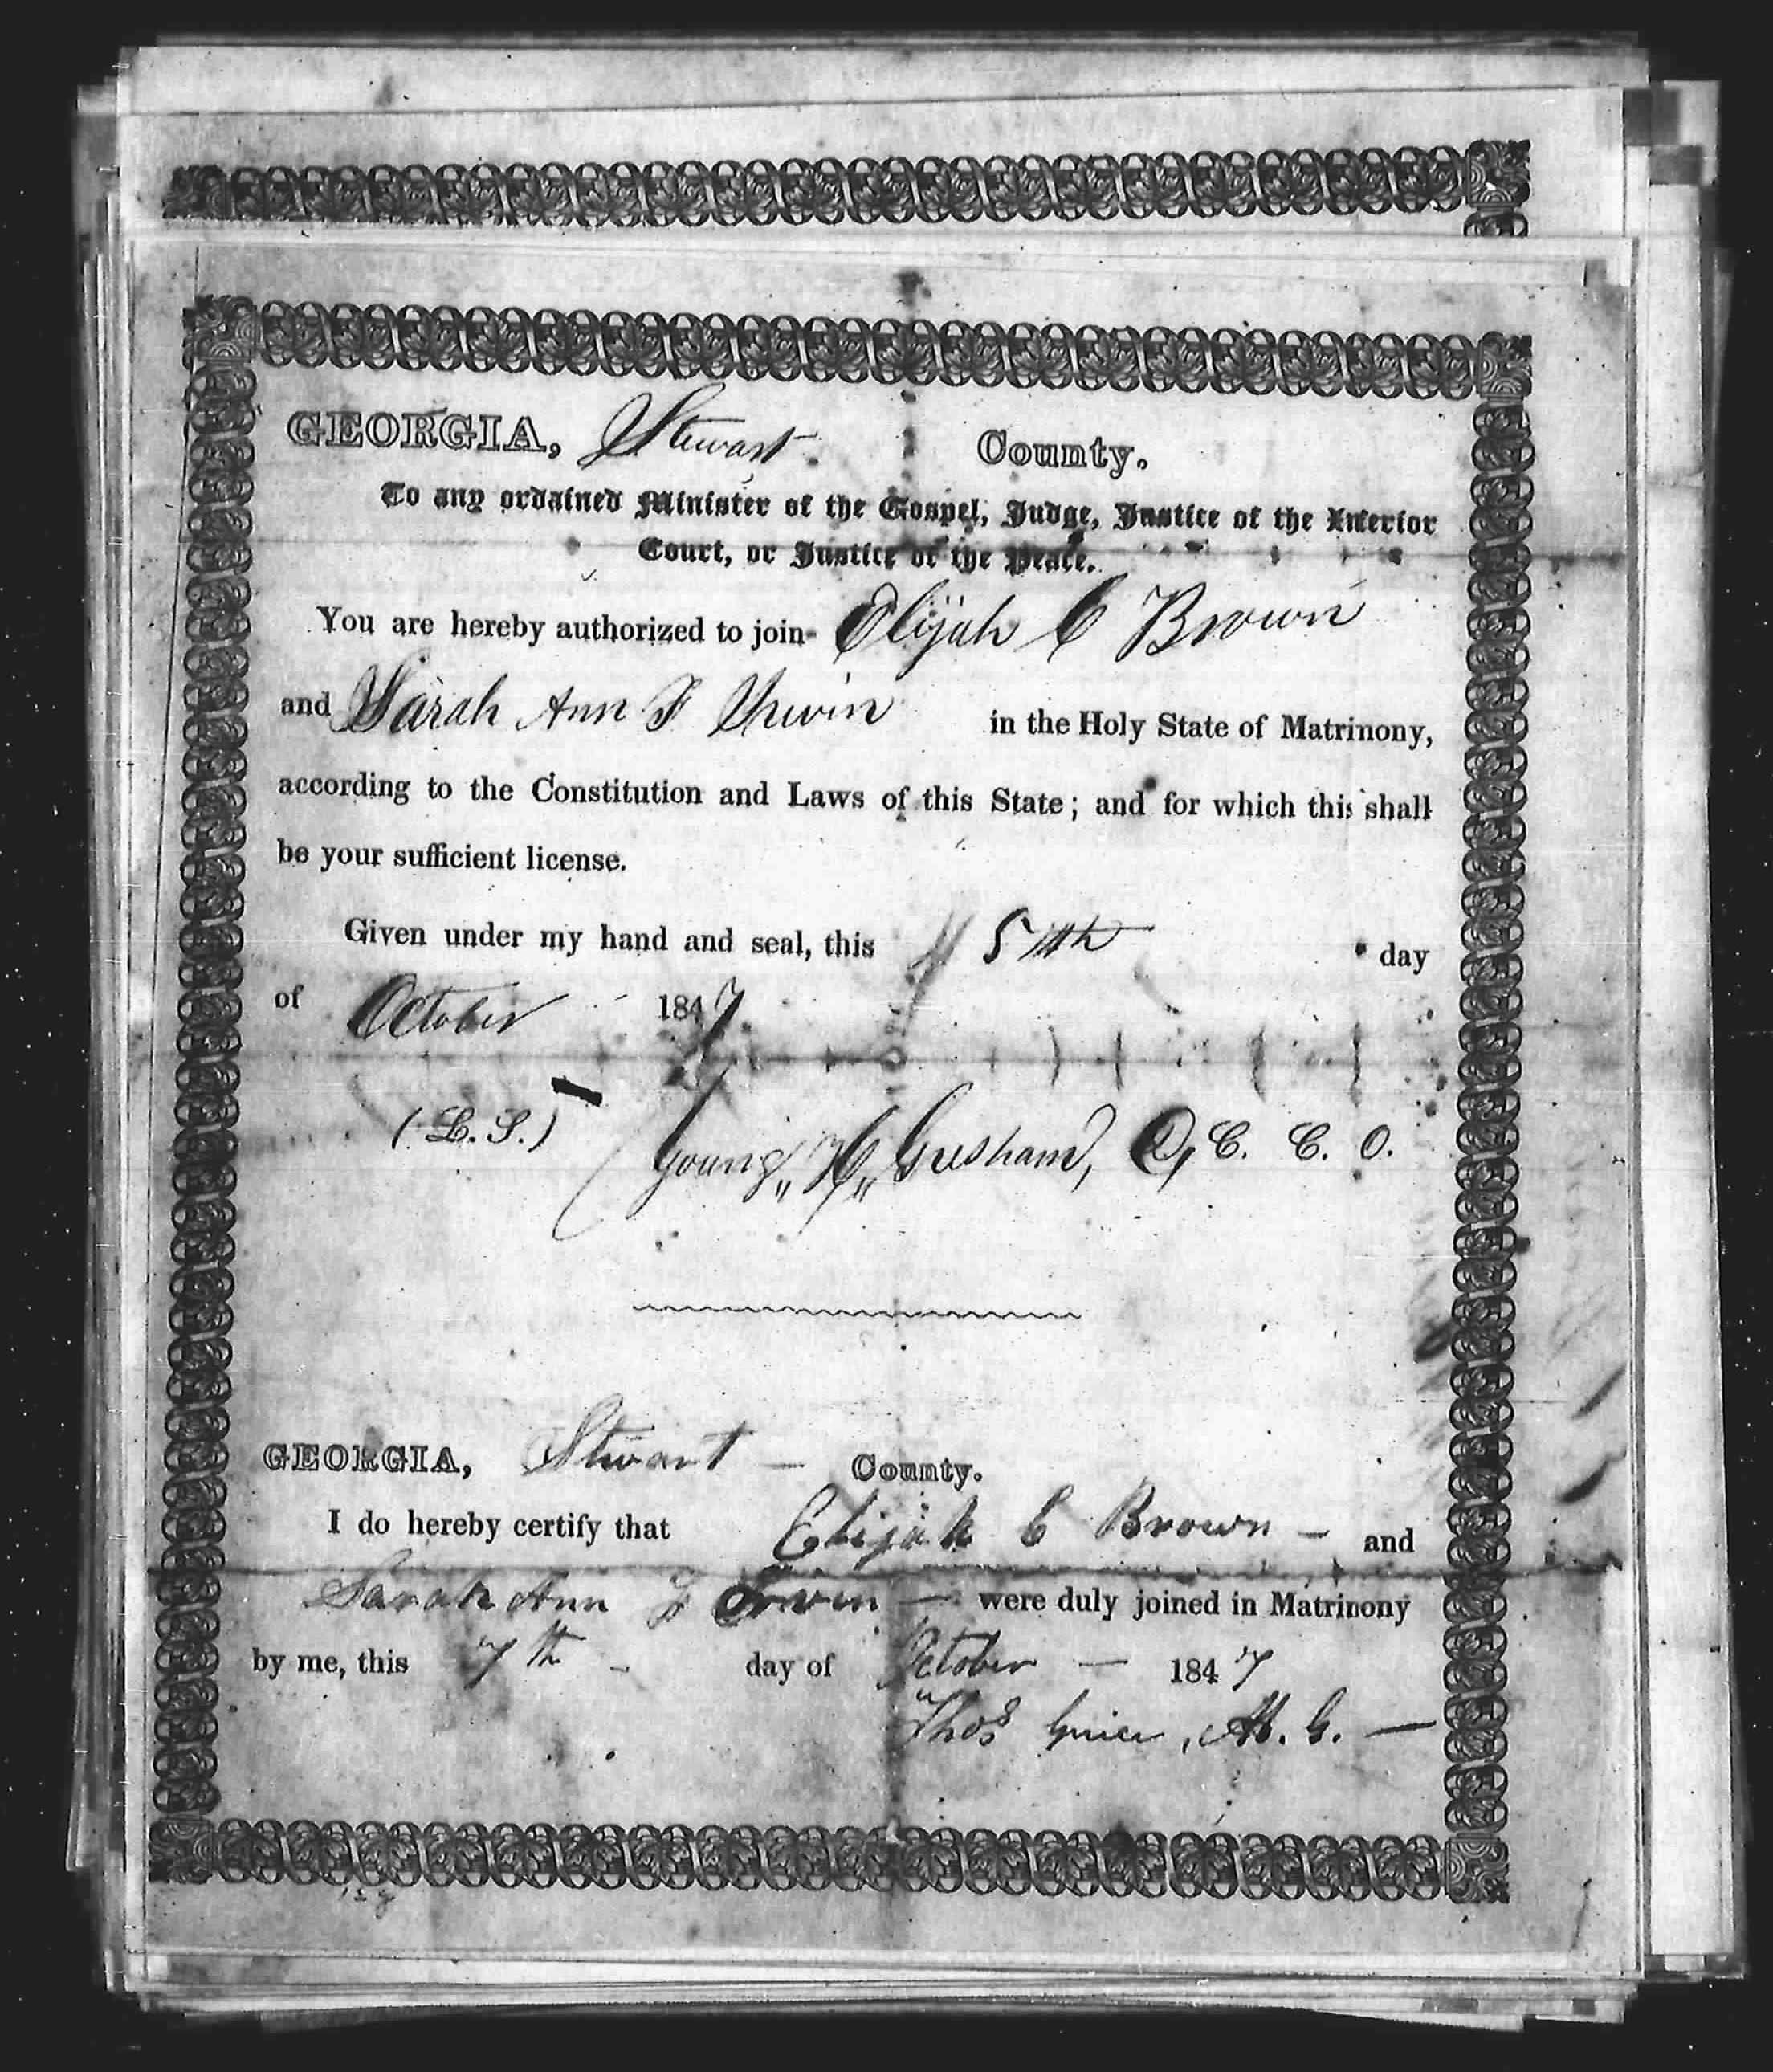 GEORGIA, Stewart County.
To any ordained Minister of the Gospel, Judge, Justice of the Inferior
Court, or Justice of the Peace.
You are hereby authorized to join Elijah C Brown
and Sarah Ann F Irwin in the Holy State of Matrimony,
according to the Constitution and Laws of this State; and for which this shall
be your sufficient license.
Given under my hand and seal, this 5th day
of October 1847
(L.S.) Young H Gresham, C. C. O.
GEORGIA, Stewart County.
I do hereby certify that Elijah C Brown — and
Sarah Ann F Irwin — were duly joined in Matrimony
by me, this 7th day of October — 1847
Thos Grier, M. G. —